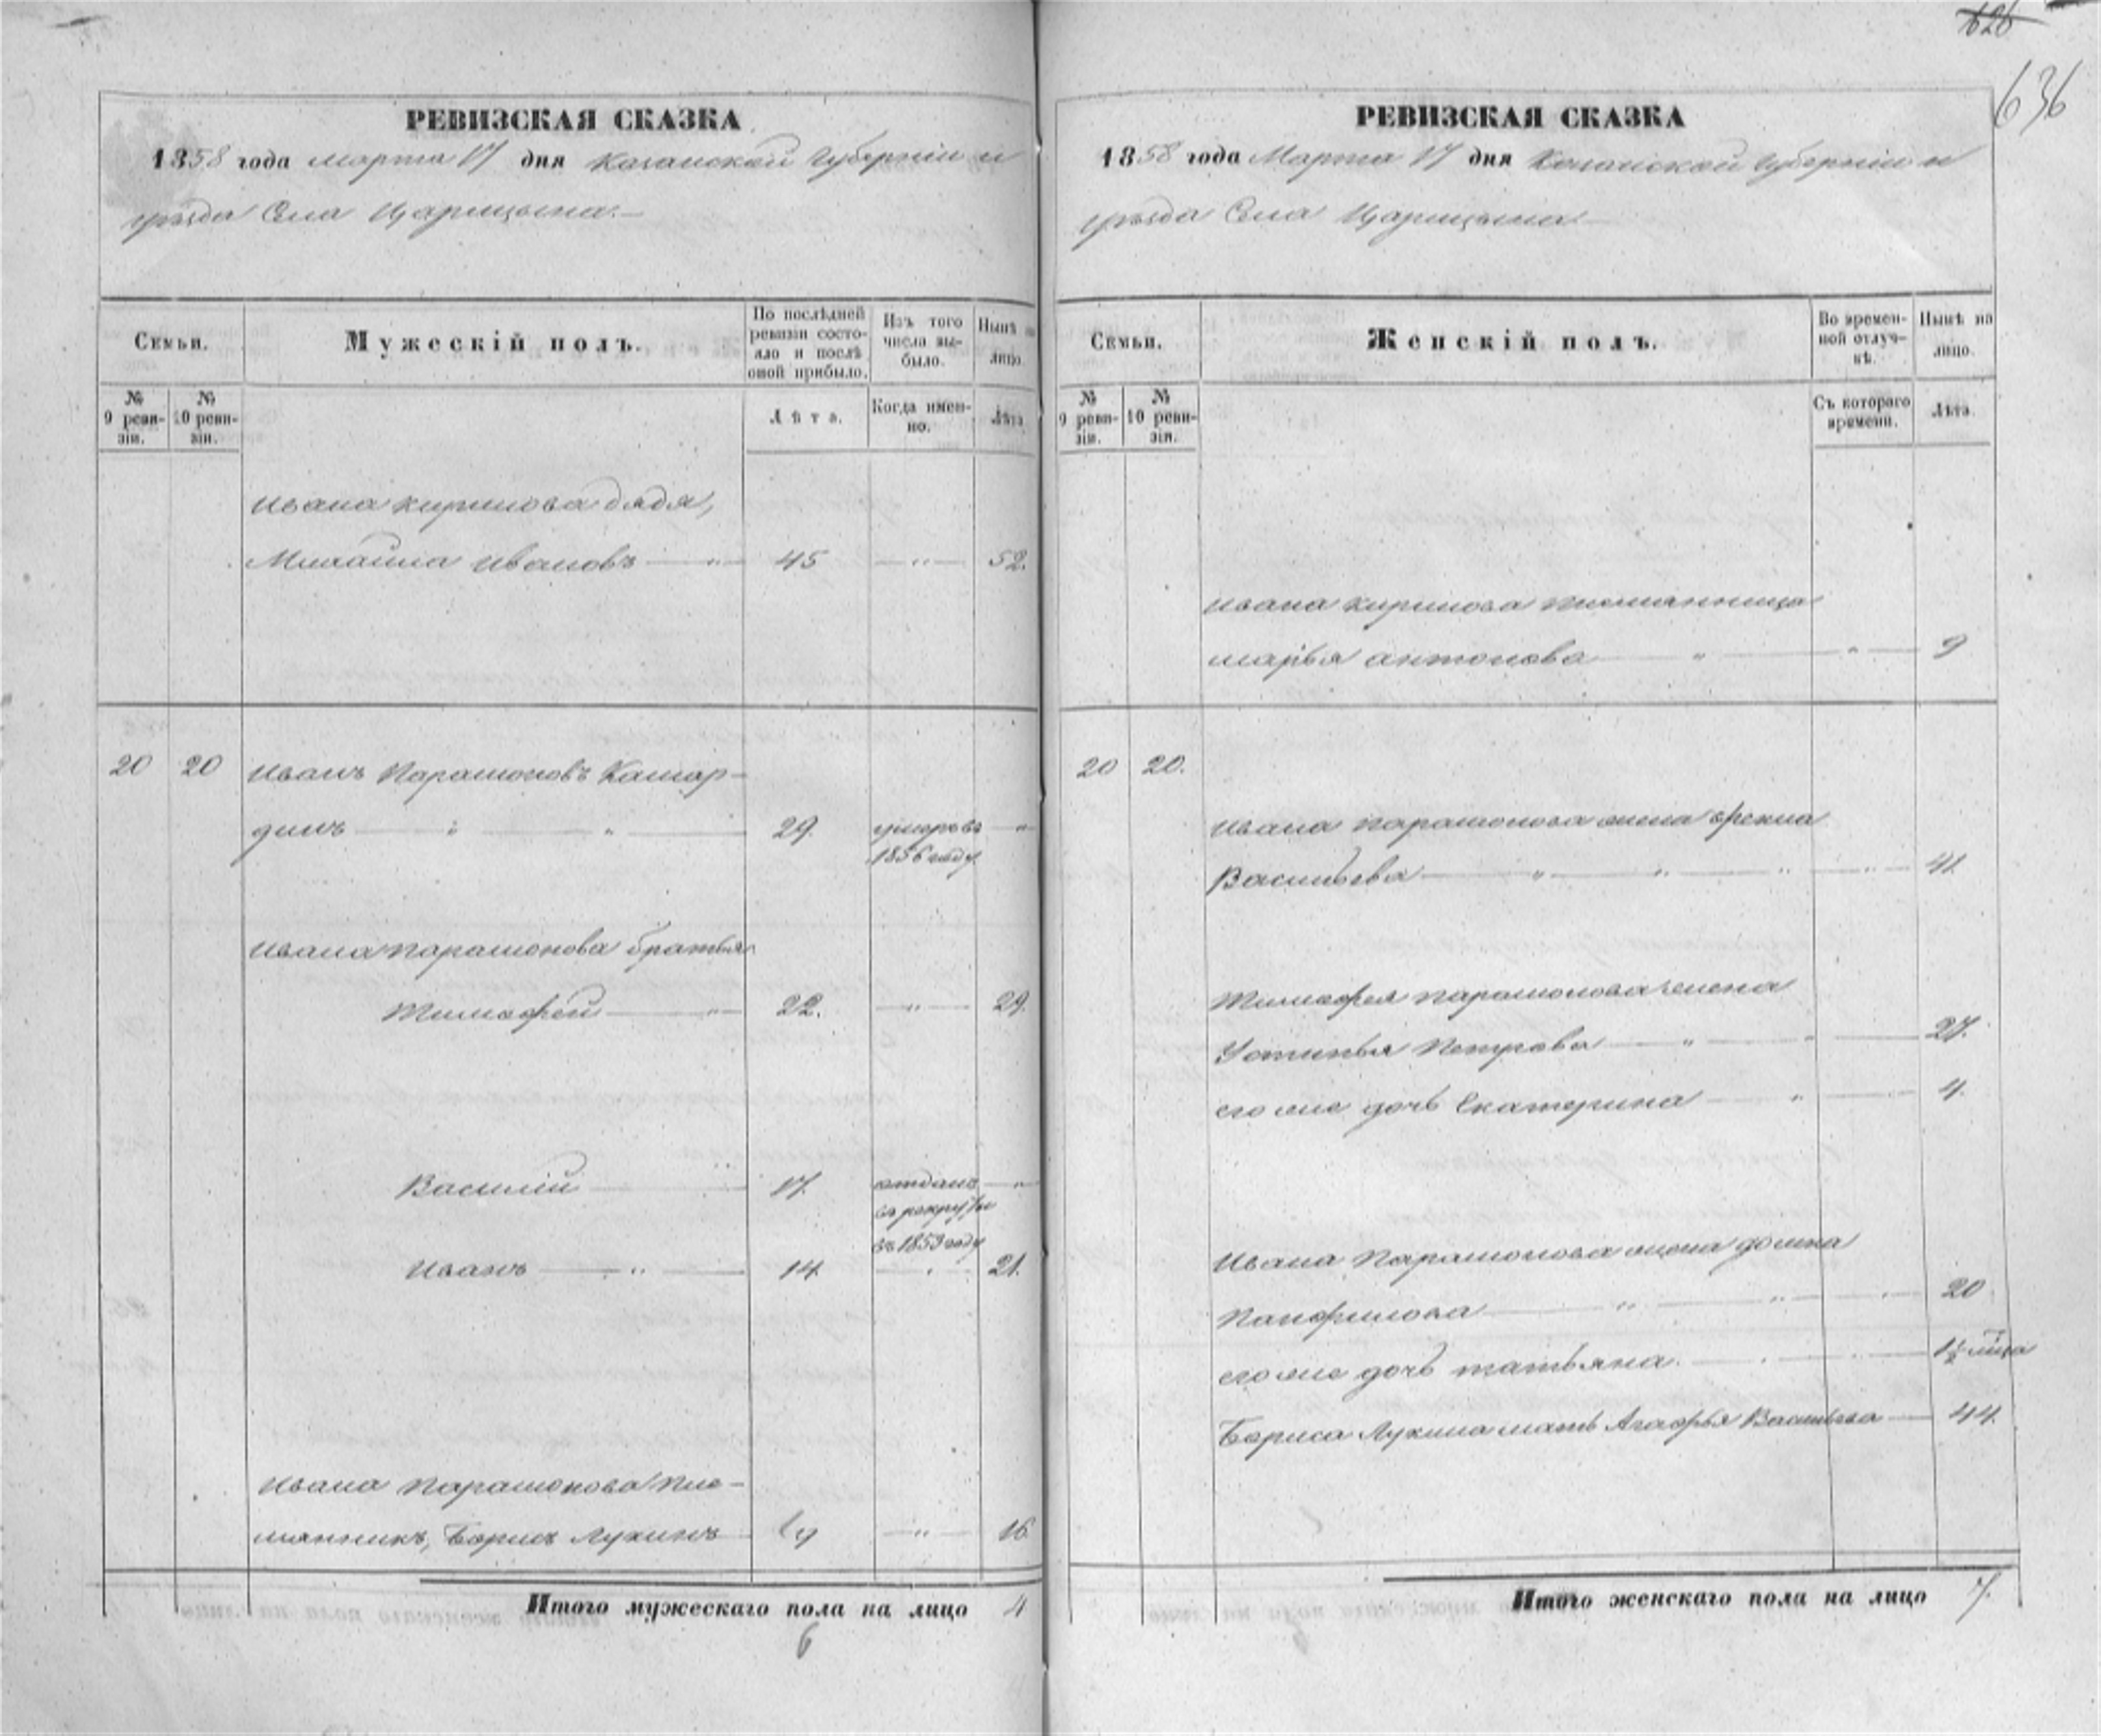 626
636
РЕВИЗСКАЯ СКАЗКА
1858 года Марта 17 дня Казанской Губернiи и
уѣзда Села Царицына.
Семьи.
Мужескiй полъ.
По послѣдней ревизiи состояло и послѣ оной прибыло.
Изъ того числа выбыло.
Нынѣ на лицо.
№ 9 ревизiи.
№ 10 ревизiи.
Лѣта.
Когда именно.
Лѣта
Ивана Кирилова дядя,
Михайла Ивановъ — " — 45 — " — 52.
20 20 Иванъ Парамоновъ Кашар-
динъ — " — " — 29. умеръ въ — "
1856 году
Ивана Парамонова братья
Тимофей — " — 22. — " — 29.
Василiй — 17. отданъ — "
въ рекруты
въ 1853 году
Иванъ — " — 14 — " — 21.
Ивана Парамонова пле-
мянникъ, Борисъ Лукинъ 9 — " — 16
Итого мужескаго пола на лицо 4
6
РЕВИЗСКАЯ СКАЗКА
1858 года Марта 17 дня Казанской Губернiи и
уѣзда Села Царицына
Семьи.
Женскiй полъ.
Во временной отлучкѣ.
Нынѣ на лицо.
№ 9 ревизiи.
№ 10 ревизiи.
Съ котораго времени.
Лѣта.
Ивана Кирилова племянница
Марья Антонова — " — " — 9
20 20.
Ивана Парамонова жена
Васильева — " — " — " — 41.
Тимофея Парамонова жена
Устинья Петрова — " — " — 27.
его же дочь Екатерина — " — 4.
Ивана Парамонова жена Домна
Панфилова — " — " — 20
его же дочь Татьяна. — 1½ мѣсца
Бориса Лукина мать Агафья Васильева — 44.
Итого женскаго пола на лицо 7.